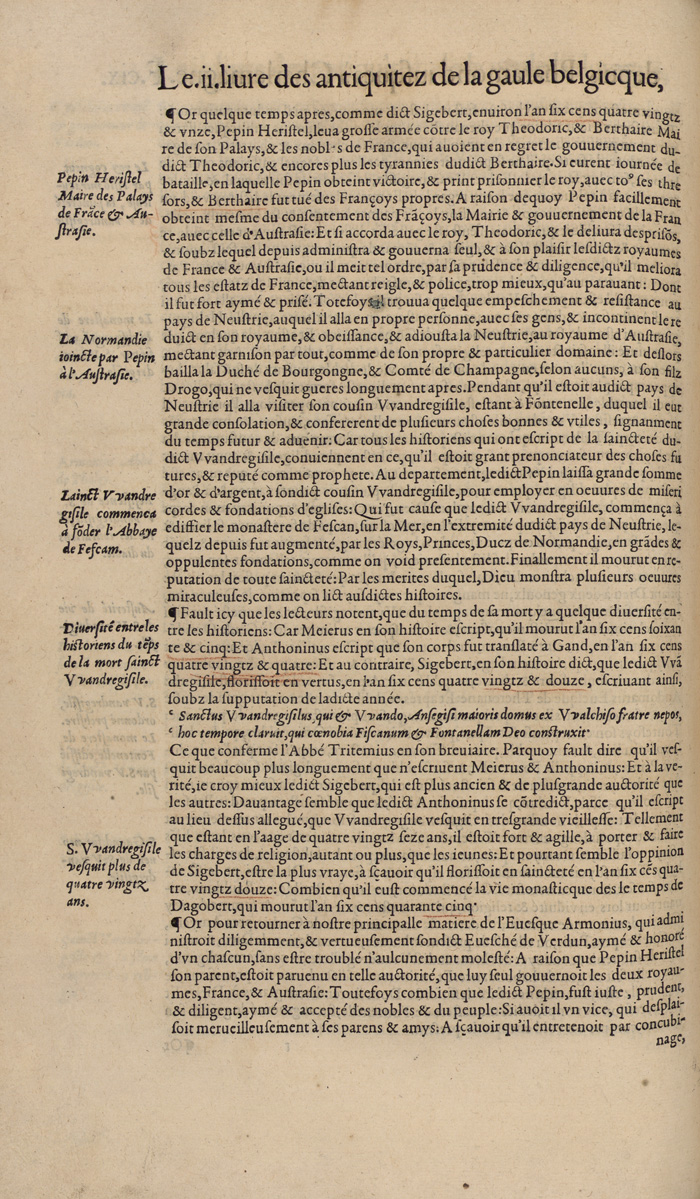 Le.ii.liure des antiquitez de la gaule belgicque,
¶Or quelque temps apres,comme dict Sigebert,enuiron l'an ſix cens quatre vingtz
& vnze,Pepin Heriſtel,leua groſſe armée cõtre le roy Theodoric,& Berthaire Mai
re de ſon Palays,& les nobl's de France,qui auoient en regret le gouuernement du-
dict Theodoric,& encores plus les tyrannies dudict Berthaire.Si eurent iournée de
bataille,en laquelle Pepin obteint victoire,& print priſonnier le roy,auec toꝰ ſes thre
ſors,& Berthaire fut tué des Françoys propres.A raiſon dequoy Pepin facillement
obteint meſme du conſentement des Frãçoys,la Mairie & gouuernement de la Fran
ce,auec celle d'Auſtraſie:Et ſi accorda auec le roy, Theodoric,& le deliura despriſõs,
& ſoubz lequel depuis adminiſtra & gouuerna ſeul,& à ſon plaiſir leſdictz royaumes
de France & Auſtraſie,ou il meit tel ordre,par ſa prudence & diligence,qu'il meliora
tous les eſtatz de France,mectant reigle,& police,trop mieux,qu'au parauant: Dont
il fut fort aymé & priſé. Toteſoys il trouua quelque empeſchement & reſiſtance au
pays de Neuſtrie,auquel il alla en propre perſonne,auec ſes gens,& incontinent le re
duict en ſon royaume,& obeiſſance,& adiouſta la Neuſtrie,au royaume d'Auſtraſie,
mectant garniſon par tout,comme de ſon propre & particulier domaine: Et deſlors
bailla la Duché de Bourgongne,& Comté de Champagne,ſelon aucuns, à ſon filz
Drogo,qui ne veſquit gueres longuement apres.Pendant qu'il eſtoit audict pays de
Neuſtrie il alla viſiter ſon couſin Vvandregiſile, eſtant à Fõntenelle, duquel il eut
grande conſolation,& confererent de pluſieurs choſes bonnes & vtiles , ſignanment
du temps futur & aduenir: Car tous les hiſtoriens qui ont eſcript de la ſaincteté du-
dict Vvandregiſile,conuiennent en ce,qu'il eſtoit grant prenonciateur des choſes fu
tures,& reputé comme prophete.Au departement,ledict Pepin laiſſa grande ſomme
d'or & d'argent,à ſondict couſin Vvandregiſile,pour employer en oeuures de miſeri
cordes & fondations d'egliſes:Qui fut cauſe que ledict Vvandregiſile, commença à
ediffier le monaſtere de Feſcan,ſur la Mer,en l'extremité dudict pays de Neuſtrie,le-
quelz depuis fut augmenté,par les Roys,Princes,Ducz de Normandie,en grãdes &
oppulentes fondations,comme on void preſentement.Finallement il mourut en re-
putation de toute ſaincteté:Par les merites duquel,Dieu monſtra pluſieurs oeuures
miraculeuſes,comme on lict auſdictes hiſtoires.
¶Fault icy que les lecteurs notent,que du temps de ſa mort y a quelque diuerſité en-
tre les hiſtoriens: Car Meierus en ſon hiſtoire eſcript,qu'il mourut l'an ſix cens ſoixan
te & cinq: Et Anthoninus eſcript que ſon corps fut tranſlaté à Gand,en l'an ſix cens
quatre vingtz & quatre:Et au contraire, Sigebert,en ſon hiſtoire dict,que ledict Vvã
dregiſile,floriſſoit en vertus,en l'an ſix cens quatre vingtz & douze, eſcriuant ainſi,
ſoubz la ſupputation de ladicte année.
ʿ Sanctus Vvandregiſilus,qui & Vvando,Anſegiſi maioris domus ex Vvalchiſo fratre nepos,
ʿ hoc tempore claruit,qui cœnobia Fiſcanum & Fontanellam Deo conſtruxit·
Ce que conferme l'Abbé Tritemius en ſon breuiaire. Parquoy fault dire qu'il veſ-
quit beaucoup plus longuement que n'eſcriuent Meierus & Anthoninus: Et à la ve-
rité,ie croy mieux ledict Sigebert,qui eſt plus ancien & de pluſgrande auctorité que
les autres: Dauantage ſemble que ledict Anthoninus ſe cõtredict,parce qu'il eſcript
au lieu deſſus allegué,que Vvandregiſile veſquit en treſgrande vieilleſſe: Tellement
que eſtant en l'aage de quatre vingtz ſeze ans,il eſtoit fort & agille,à porter & faire
les charges de religion,autant ou plus,que les ieunes:Et pourtant ſemble l'oppinion
de Sigebert,eſtre la plus vraye,à ſçauoir qu'il floriſſoit en ſaincteté en l'an ſix cẽs qua-
tre vingtz douze: Combien qu'il euſt commencé la vie monaſticque des le temps de
Dagobert,qui mourut l'an ſix cens quarante cinq·
¶Or pour retourner à noſtre principalle matiere de l'Eueſque Armonius, qui admi
niſtroit diligemment,& vertueuſement ſondict Eueſché de Verdun,aymé & honoré
d'vn chaſcun,ſans eſtre troublé n'aulcunement moleſté: A raiſon que Pepin Heriſtel
ſon parent,eſtoit paruenu en telle auctorité,que luy ſeul gouuernoit les deux royau-
mes, France,& Auſtraſie: Toutefoys combien que ledict Pepin,fuſt iuſte , prudent,
& diligent,aymé & accepté des nobles & du peuple:Si auoit il vn vice, qui deſplai-
ſoit merueilleuſement à ſes parens & amys: A ſçauoir qu'il entretenoit par concubi-
nage,
Pepin Heriſtel
Maire des Palays
de Frãce & Au-
ſtraſie.
La Normandie
ioincte par Pepin
à l'Auſtraſie.
Lainct Vvandre
giſile commença
à fõder l'Abbaye
de Feſcam.
Diuerſité entre les
hiſtoriens du tẽps
de la mort ſainct
Vvandregiſile.
S. Vvandregiſile
veſquit plus de
quatre vingtz
ans.